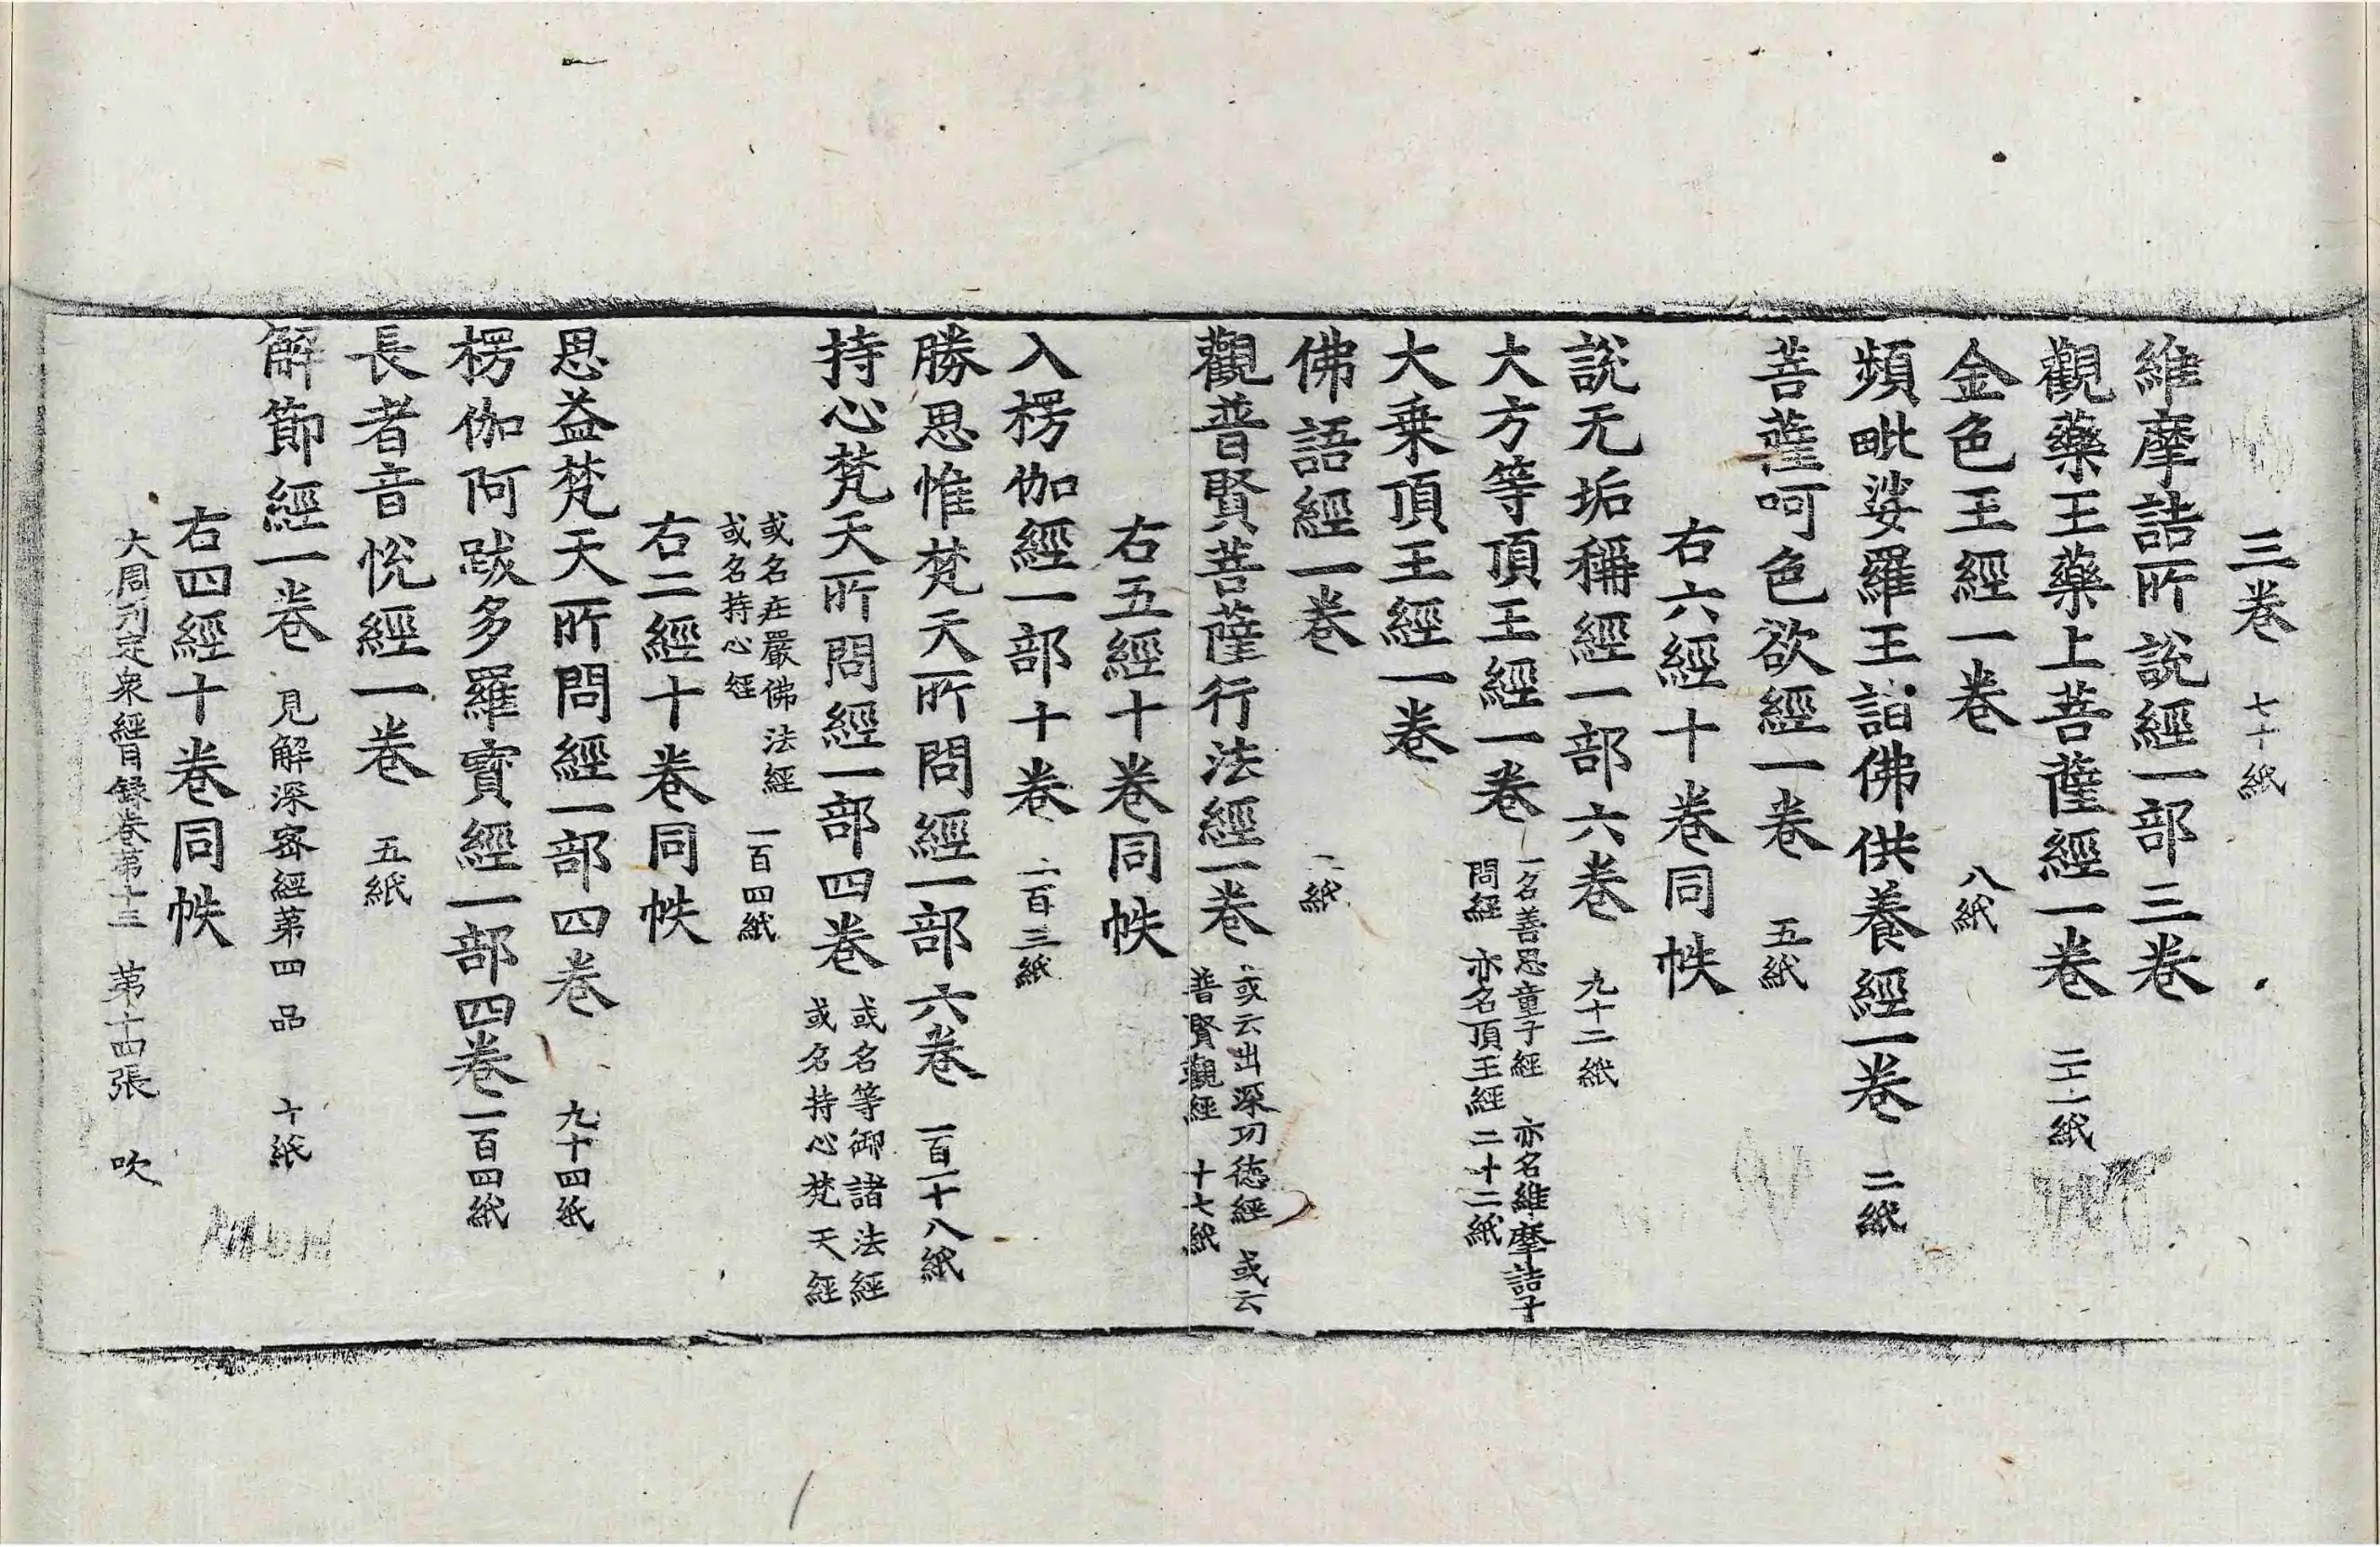 三卷 七十紙
維摩詰所說經一部三卷
觀藥王藥上菩薩經一卷 二十一紙
金色王經一卷 八紙
頻毗娑羅王詣佛供養經一卷 二紙
菩薩呵色欲經一卷 五紙
右六經十卷同帙
說无垢稱經一部六卷 九十二紙
大方等頂王經一卷 一名善思童子經 亦名維摩詰子
問經 亦名頂王經 二十二紙
大乗頂王經一卷
佛語經一卷 二紙
觀普賢菩薩行法經一卷 或云出深功德經 或云
普賢觀經 十七紙
右五經十卷同帙
入楞伽經一部十卷 二百三紙
勝思惟梵天所問經一部六卷 一百一十八紙
持心梵天所問經一部四卷 或名等御諸法經
或名持心梵天經
或名庄嚴佛法經
或名持心経 一百四紙
右二經十卷同帙
思益梵天所問經一部四卷 九十四紙
楞伽阿跋多羅寶經一部四卷 一百四紙
長者音悅經一卷 五紙
解節經一卷 見解深密經第四品 十紙
右四經十卷同帙
大周刋定衆經目録卷苐十三 苐十四張 吹